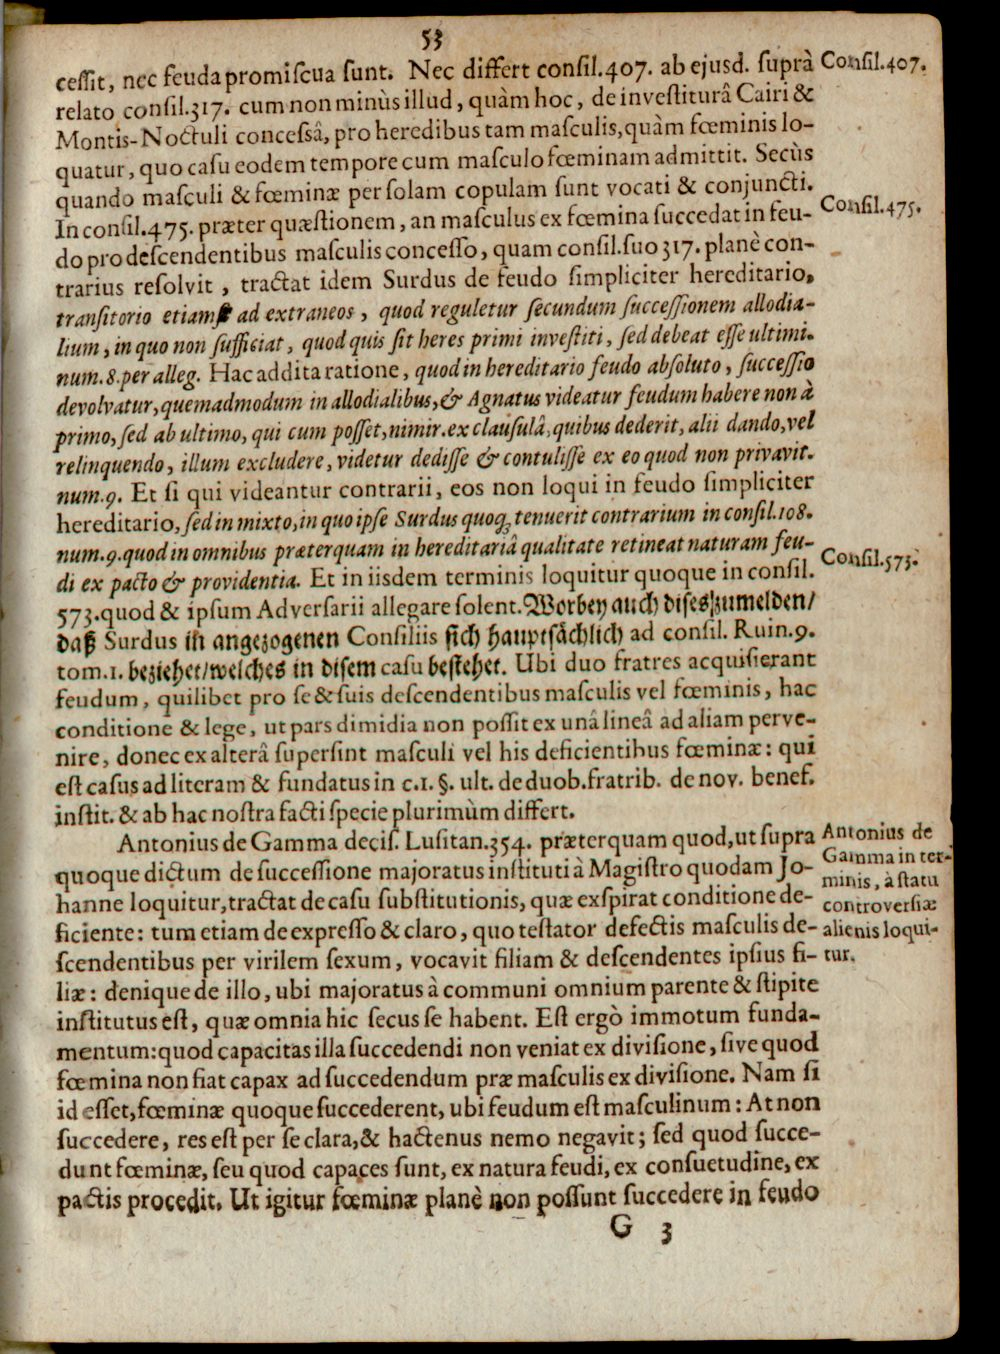 53
ceſſit, nec feuda promiſcua ſunt. Nec differt conſil.407. ab ejusd. ſuprà
Conſil.407.
relato conſil.317. cum non minùs illud, quàm hoc, de inveſtiturâ Cairi &
Montis-Noctuli conceſsâ, pro heredibus tam maſculis, quàm fœminis lo-
quatur, quo caſu eodem tempore cum maſculo fœminam admittit. Secùs
quando maſculi & fœminæ per ſolam copulam ſunt vocati & conjuncti.
In conſil.475. præter quæſtionem, an maſculus ex fœmina ſuccedat in feu-
Conſil.475.
do pro deſcendentibus maſculis conceſſo, quam conſil.ſuo 317. planè con-
trarius reſolvit, tractat idem Surdus de feudo ſimpliciter hereditario,
tranſitorio etiamſi ad extraneos, quod reguletur ſecundum ſucceſſionem allodia-
lium, in quo non ſufficiat, quod quis ſit heres primi inveſtiti, ſed debeat eſſe ultimi.
num.8.per alleg. Hac addita ratione, quod in hereditario feudo abſoluto, ſucceſſio
devolvatur, quemadmodum in allodialibus, & Agnatus videatur feudum habere non à
primo, ſed ab ultimo, qui cum poſſet, nimir. ex clauſulâ, quibus dederit, alii dando, vel
relinquendo, illum excludere, videtur dediſſe & contuliſſe ex eo quod non privavit.
num.9. Et ſi qui videantur contrarii, eos non loqui in feudo ſimpliciter
hereditario, ſed in mixto, in quo ipſe Surdus quoq; tenuerit contrarium in conſil.108.
num.9. quod in omnibus præterquam in hereditariâ qualitate retineat naturam feu-
di ex pacto & providentia. Et in iisdem terminis loquitur quoque in conſil.
Conſil.573.
573. quod & ipſum Adverſarii allegare ſolent. Worbey auch diſes zumelden/
daß Surdus in angezogenen Conſiliis ſich hauptſächlich ad conſil. Ruin.9.
tom.1. beziehet/welches in diſem caſu beſtehet. Ubi duo fratres acquiſierant
feudum, quilibet pro ſe & ſuis deſcendentibus maſculis vel fœminis, hac
conditione & lege, ut pars dimidia non poſſit ex unâ lineâ ad aliam perve-
nire, donec ex alterâ ſuperſint maſculi vel his deficientibus fœminæ: qui
eſt caſus ad literam & fundatus in c.1. §. ult. de duob. fratrib. de nov. benef.
inſtit. & ab hac noſtra facti ſpecie plurimùm differt.
Antonius de Gamma deciſ. Luſitan.354. præterquam quod, ut ſupra
quoque dictum de ſucceſſione majoratus inſtituti à Magiſtro quodam Jo-
hanne loquitur, tractat de caſu ſubſtitutionis, quæ exſpirat conditione de-
ficiente: tum etiam de expreſſo & claro, quo teſtator defectis maſculis de-
ſcendentibus per virilem ſexum, vocavit filiam & deſcendentes ipſius fi-
Antonius de
Gamma in ter-
minis, à ſtatu
controverſiæ
alienis loqui-
tur.
liæ: denique de illo, ubi majoratus à communi omnium parente & ſtipite
inſtitutus eſt, quæ omnia hic ſecus ſe habent. Eſt ergò immotum funda-
mentum: quod capacitas illa ſuccedendi non veniat ex diviſione, ſive quod
fœmina non fiat capax ad ſuccedendum præ maſculis ex diviſione. Nam ſi
id eſſet, fœminæ quoque ſuccederent, ubi feudum eſt maſculinum: At non
ſuccedere, res eſt per ſe clara, & hactenus nemo negavit; ſed quod ſucce-
dunt fœminæ, ſeu quod capaces ſunt, ex natura feudi, ex conſuetudine, ex
pactis procedit. Ut igitur fœminæ planè non poſſunt ſuccedere in feudo
G 3